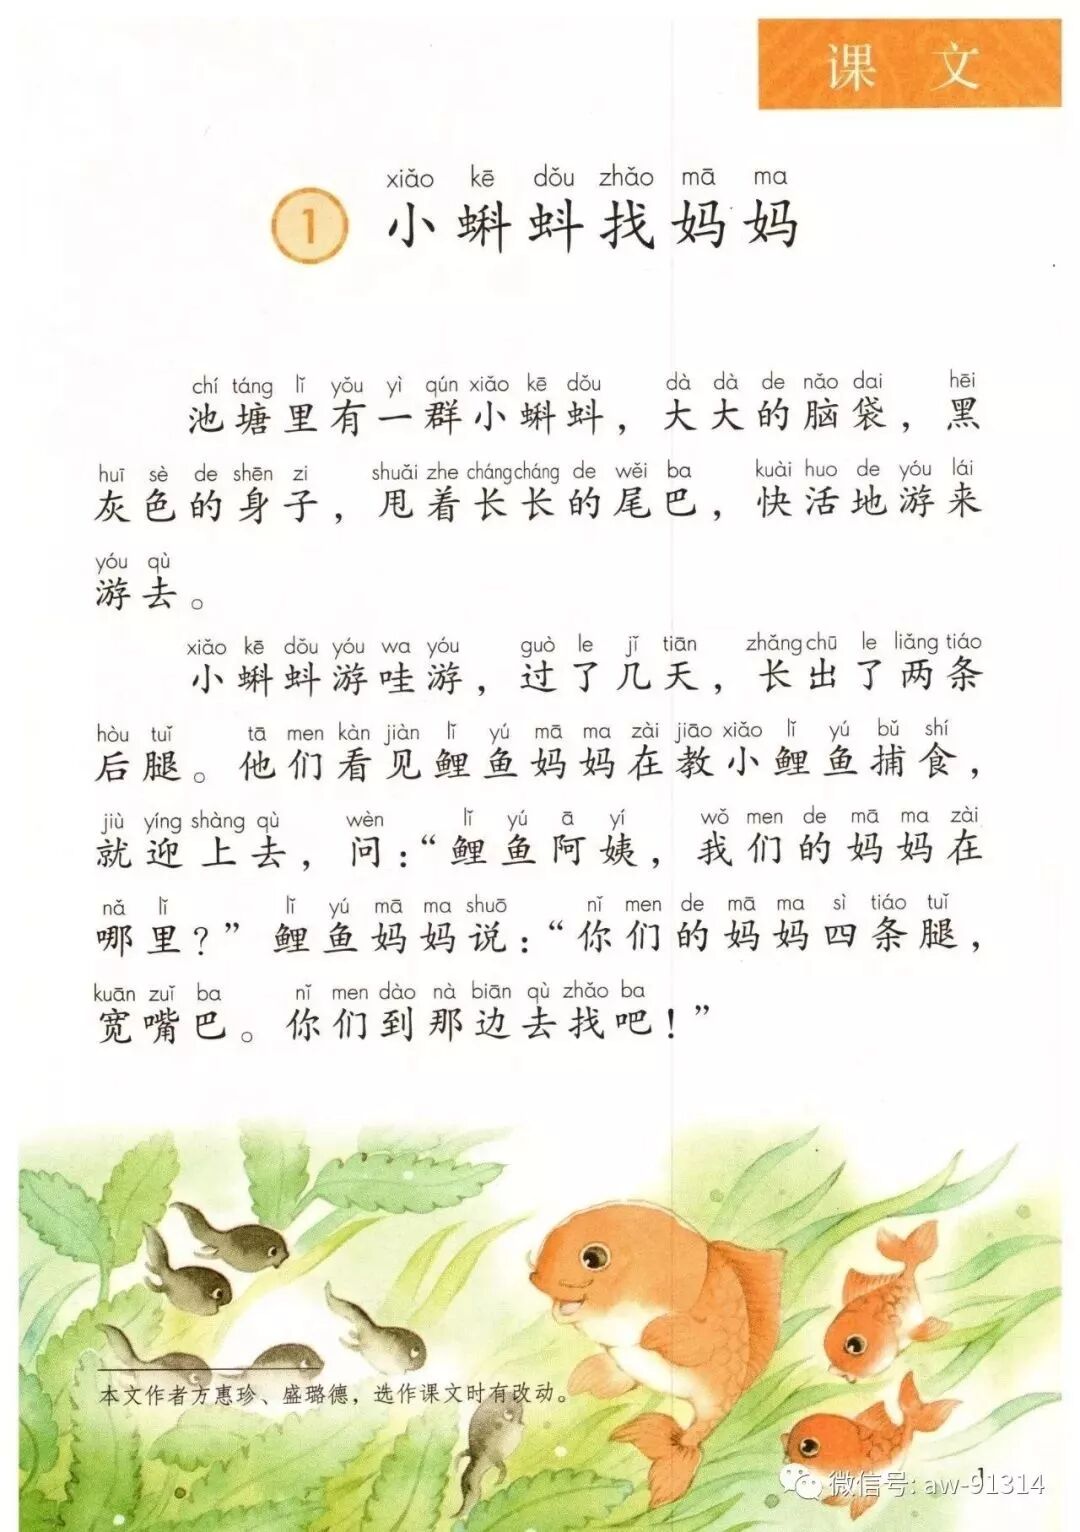 课 文
xiǎo kē dǒu zhǎo mā ma
1 小蝌蚪找妈妈
chí táng lǐ yǒu yì qún xiǎo kē dǒu dà dà de nǎo dai hēi
池塘里有一群小蝌蚪，大大的脑袋，黑
huī sè de shēn zi shuǎi zhe cháng cháng de wěi ba kuài huo de yóu lái
灰色的身子，甩着长长的尾巴，快活地游来
yóu qù
游去。
xiǎo kē dǒu yóu wa yóu guò le jǐ tiān zhǎng chū le liǎng tiáo
小蝌蚪游哇游，过了几天，长出了两条
hòu tuǐ tā men kàn jiàn lǐ yú mā ma zài jiāo xiǎo lǐ yú bǔ shí
后腿。他们看见鲤鱼妈妈在教小鲤鱼捕食，
jiù yíng shàng qù wèn lǐ yú ā yí wǒ men de mā ma zài
就迎上去，问：“鲤鱼阿姨，我们的妈妈在
nǎ lǐ lǐ yú mā ma shuō nǐ men de mā ma sì tiáo tuǐ
哪里？”鲤鱼妈妈说：“你们的妈妈四条腿，
kuān zuǐ ba nǐ men dào nà biān qù zhǎo ba
宽嘴巴。你们到那边去找吧！”
本文作者方惠珍、盛璐德，选作课文时有改动。
1
微信号: aw-91314